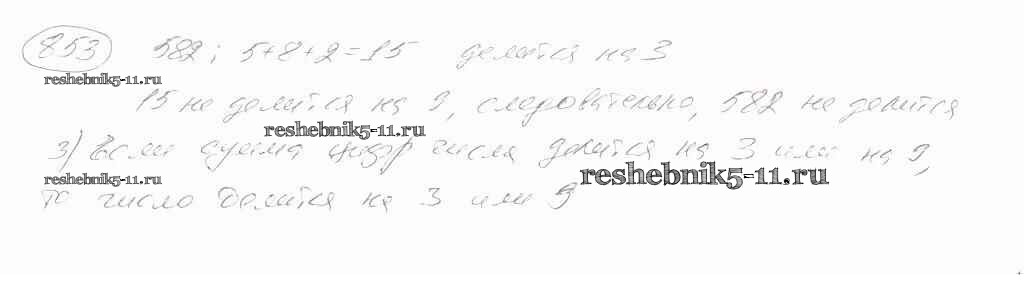 853 582; 5+8+2=15 делится на 3
reshebnik5-11.ru
15 не делится на 9, следовательно, 582 не делится
reshebnik5-11.ru
3) Если сумма цифр числа делится на 3 или на 9,
reshebnik5-11.ru reshebnik5-11.ru
то число делится на 3 или 9